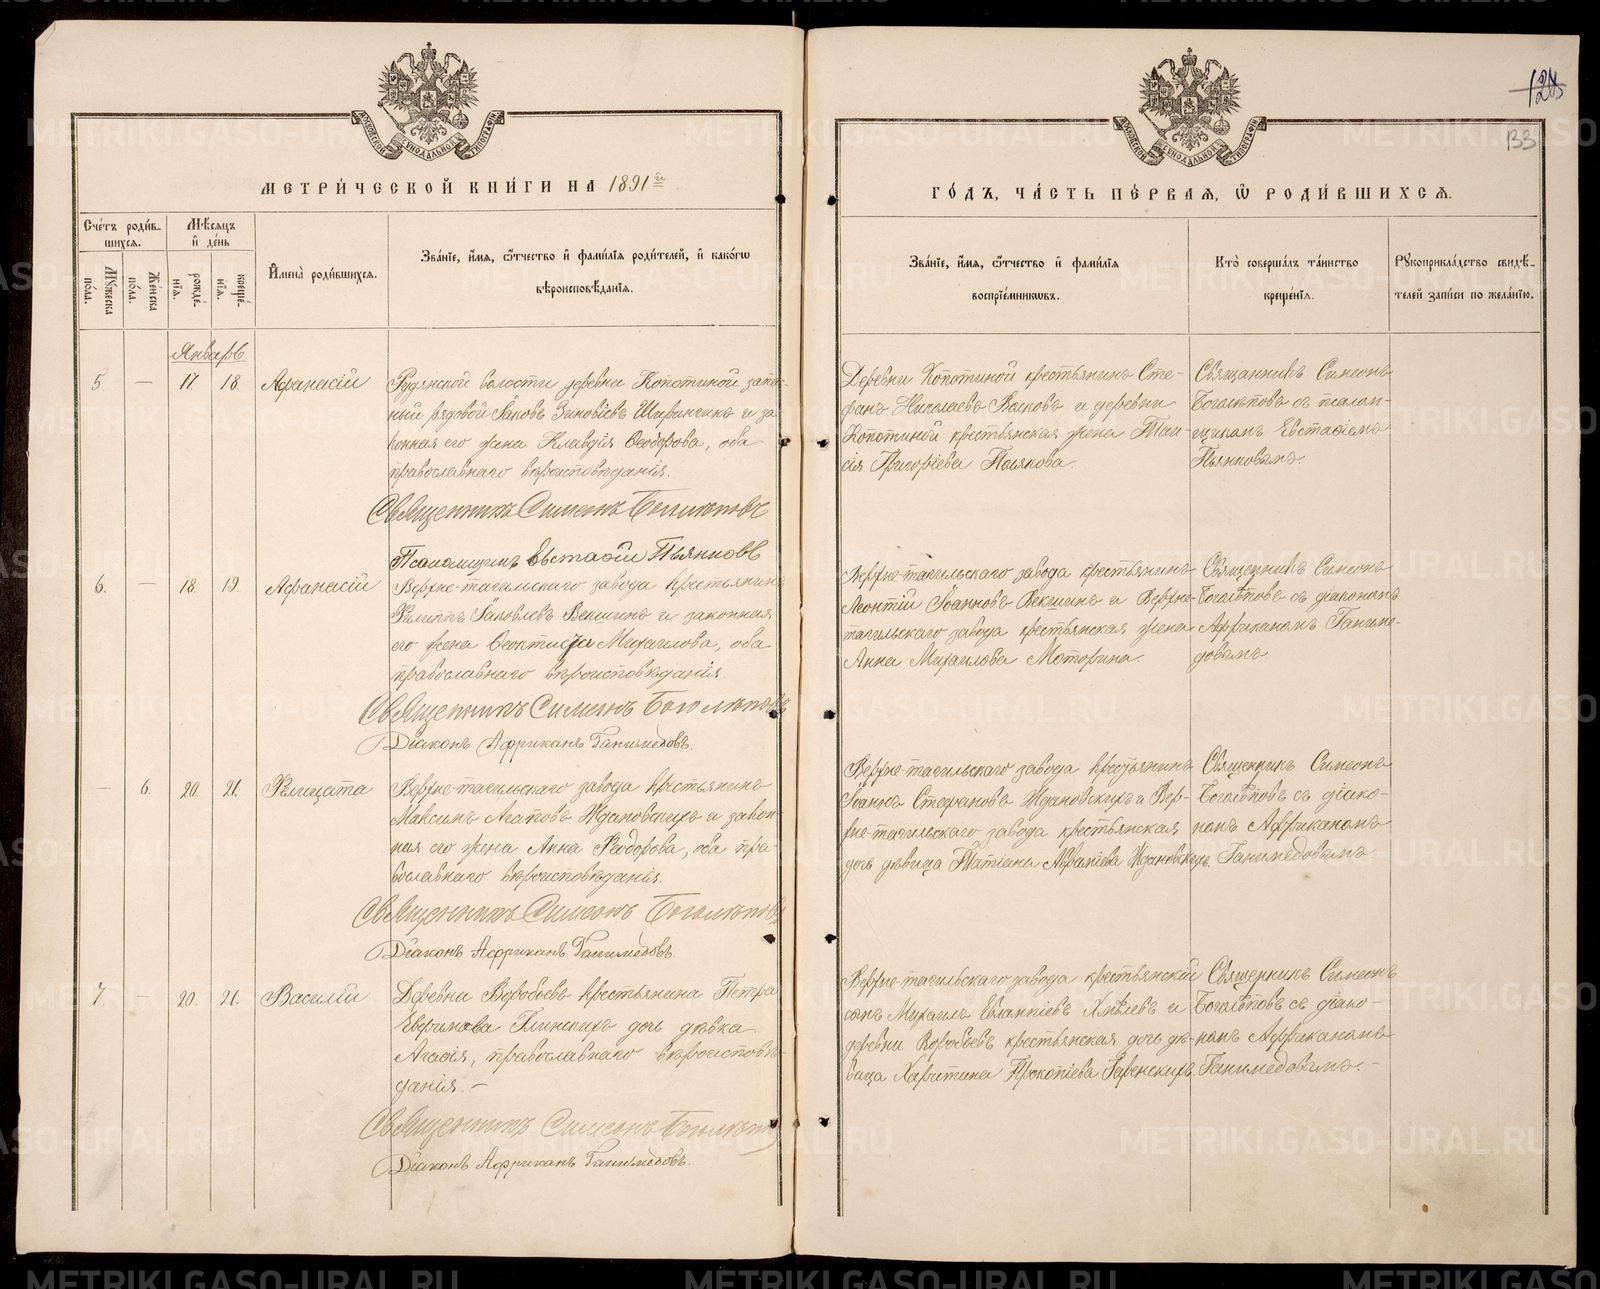 МЕТРИ́ЧЕСКОЙ КНИ́ГИ НА 1891й
Сче́тъ роди́в-
шихся.
Мѣсяцъ
и҆ де́нь
И҆мена̀ роди́вшихся.
Зва́нїе, и҆́мя, ѻ҆́тчество и҆ фами́лїя роди́телей, и҆ како́гѡ
вѣроисповѣ́данїя.
Му́жеска
по́ла.
Же́нска
по́ла.
рожде́-
нїя.
креще́-
нїя.
Январь
5 — 17 18 Афанасій
Рудянской волости деревни Копотиной запас-
ный рядовой Іаковъ Зиновіевъ Ширинкинъ и за
конная его жена Клавдія Ѳеодорова, оба
православнаго вѣроисповѣданія.
Священникъ Симеонъ Боголѣповъ
Псаломщикъ Евстафій Пьянковъ
6. — 18. 19. Афанасій
Верхне-тагильскаго завода крестьянинъ
Филиппъ Іаковлевъ Векшинъ и законная
его жена Ѳеоктиста Михаилова, оба
православнаго вѣроисповѣданія.
Священникъ Симеонъ Боголѣповъ
Діаконъ Африканъ Ганимедовъ.
— 6. 20. 21. Филицата
Верхне-тагильскаго завода крестьянинъ
Максимъ Агаповъ Ждановскихъ и закон-
ная его жена Анна Ѳеодорова, оба пра-
вославнаго вѣроисповѣданія.
Священникъ Симеонъ Боголѣповъ
Діаконъ Африканъ Ганимедовъ.
7 — 20. 21. Василій
Деревни Воробьевъ крестьянина Петра
Евфимова Глинскихъ дочь дѣвка
Агафія, православнаго вѣроисповѣ-
данія. —
Священникъ Симеонъ Боголѣповъ
Діаконъ Африканъ Ганимедовъ.
133
ГО́ДЪ, ЧА́СТЬ ПЕ́РВАЯ, Ѽ РОДИ́ВШИХСЯ.
Зва́нїе, и҆́мя, ѻ҆́тчество и҆ фами́лїя
воспрїе́мниковъ.
Кто̀ соверша́лъ та́инство
креще́нїя.
Рꙋкоприкла́дство свидѣ́-
телей за́писи по жела́нїю.
Деревни Копотиной крестьянинъ Сте-
фанъ Николаевъ Волковъ и деревни
Копотиной крестьянская жена Таи-
сія Григоріева Полякова.
Священникъ Симеонъ
Боголѣповъ съ псалом-
щикомъ Евстафіемъ
Пьянковымъ.
Верхне-тагильскаго завода крестьянинъ
Леонтій Іоанновъ Векшинъ и Верхне-
тагильскаго завода крестьянская жена
Анна Михаилова Моторина.
Священникъ Симеонъ
Боголѣповъ съ діакономъ
Африканомъ Ганиме-
довымъ
Верхне-тагильскаго завода крестьянинъ
Іоаннъ Стефановъ Ждановскихъ и Вер-
хне-тагильскаго завода крестьянская
дочь дѣвица Татіана Ждановскихъ
Священникъ Симеонъ
Боголѣповъ съ діако-
номъ Африканомъ
Ганимедовымъ
Верхне-тагильскаго завода крестьянскій
сынъ Михаилъ Евлампіевъ Хмѣлевъ и
деревни Воробьевъ крестьянская дочь дѣ-
вица Харитина Прокопіева
Священникъ Симеонъ
Боголѣповъ съ діако-
номъ Африканомъ
Ганимедовымъ. —
METRIKI.GASO-URAL.RU